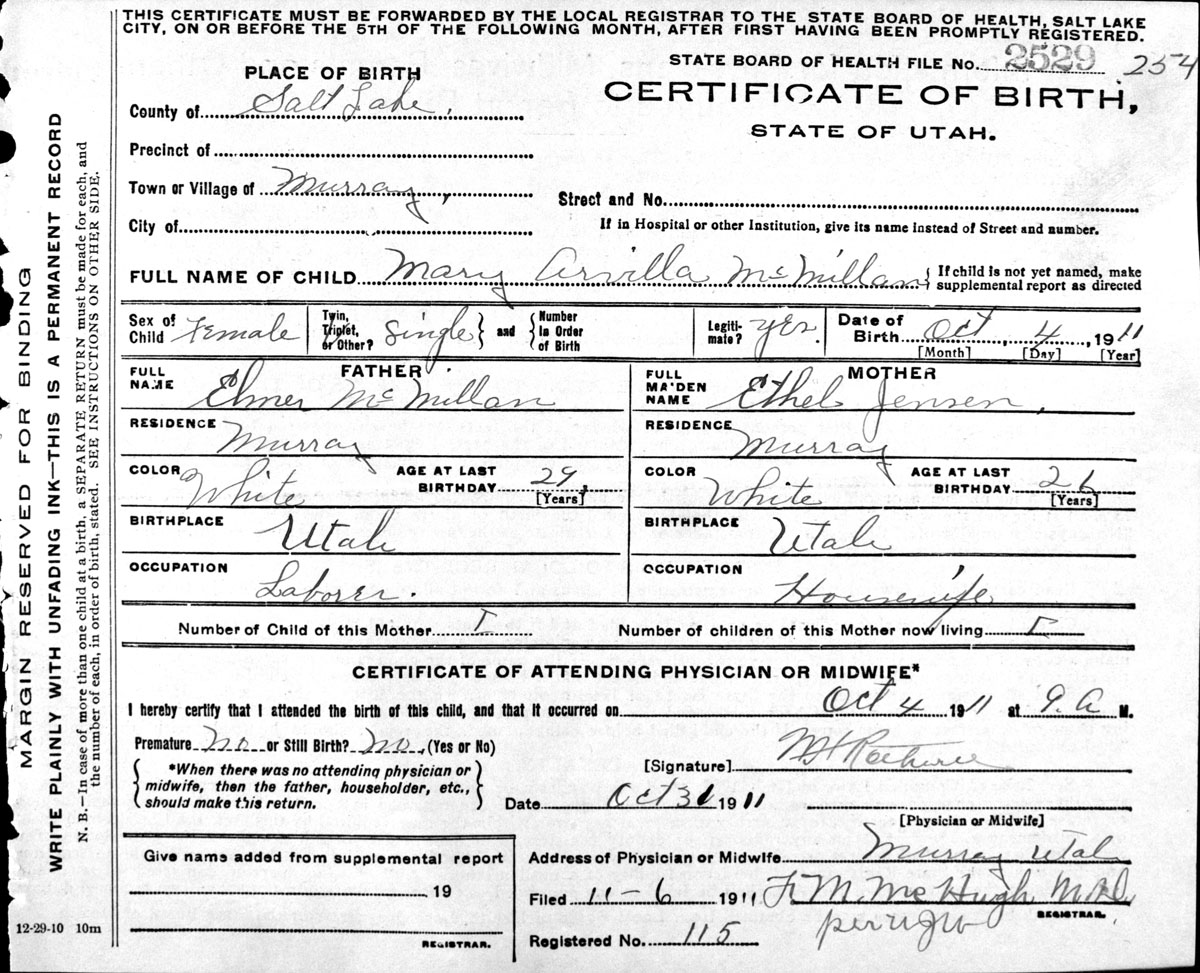 THIS CERTIFICATE MUST BE FORWARDED BY THE LOCAL REGISTRAR TO THE STATE BOARD OF HEALTH, SALT LAKE
CITY, ON OR BEFORE THE 5TH OF THE FOLLOWING MONTH, AFTER FIRST HAVING BEEN PROMPTLY REGISTERED.
STATE BOARD OF HEALTH FILE No. 2529 254
PLACE OF BIRTH
CERTIFICATE OF BIRTH,
STATE OF UTAH.
County of Salt Lake,
Precinct of
Town or Village of Murray,
Street and No.
City of
If in Hospital or other Institution, give its name instead of Street and number.
FULL NAME OF CHILD Mary Arvilla McMillan { If child is not yet named, make
supplemental report as directed
Sex of Child Female Twin, Triplet, or Other? Single } and { Number In Order of Birth Legiti-mate? yes Date of Birth Oct, 4, 1911
[Month] [Day] [Year]
FATHER
FULL NAME Elmer McMillan
RESIDENCE Murray
COLOR White AGE AT LAST BIRTHDAY 29,
[Years]
BIRTHPLACE Utah
OCCUPATION Laborer.
MOTHER
FULL MAIDEN NAME Ethel Jensen,
RESIDENCE Murray
COLOR White AGE AT LAST BIRTHDAY 26
[Years]
BIRTHPLACE Utah
OCCUPATION Housewife
Number of Child of this Mother I Number of children of this Mother now living I
CERTIFICATE OF ATTENDING PHYSICIAN OR MIDWIFE*
I hereby certify that I attended the birth of this child, and that it occurred on Oct 4 1911 at 9. A M.
Premature No or Still Birth? No, (Yes or No)
[Signature]
{ *When there was no attending physician or
midwife, then the father, householder, etc.,
should make this return. }
Date Oct 31 1911
[Physician or Midwife]
Give name added from supplemental report
19
REGISTRAR.
Address of Physician or Midwife Murray Utah
Filed 11-6 1911 F. M. McHugh M.D.
REGISTRAR.
per
Registered No. 115
12-29-10 10m
MARGIN RESERVED FOR BINDING
WRITE PLAINLY WITH UNFADING INK—THIS IS A PERMANENT RECORD
N. B.—In case of more than one child at a birth, a SEPARATE RETURN must be made for each, and
the number of each, in order of birth, stated. SEE INSTRUCTIONS ON OTHER SIDE.